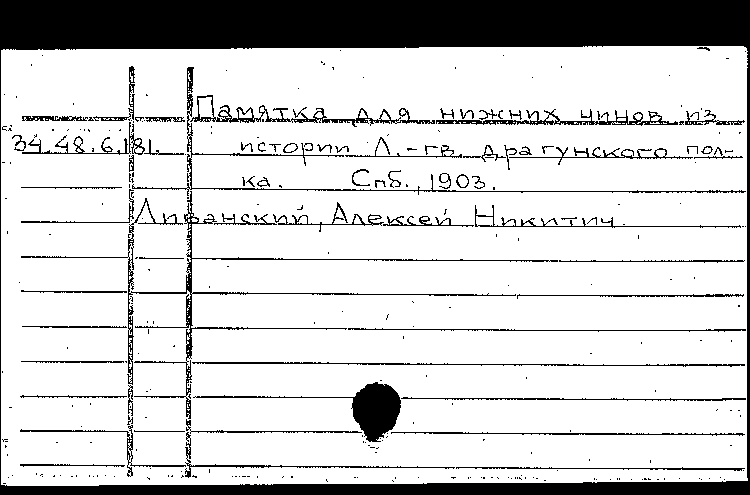 Памятка для нижних чинов из
34.48.6.181. истории Л.-гв. драгунского пол-
ка. Спб., 1903.
Ливанский, Алексей Никитич.